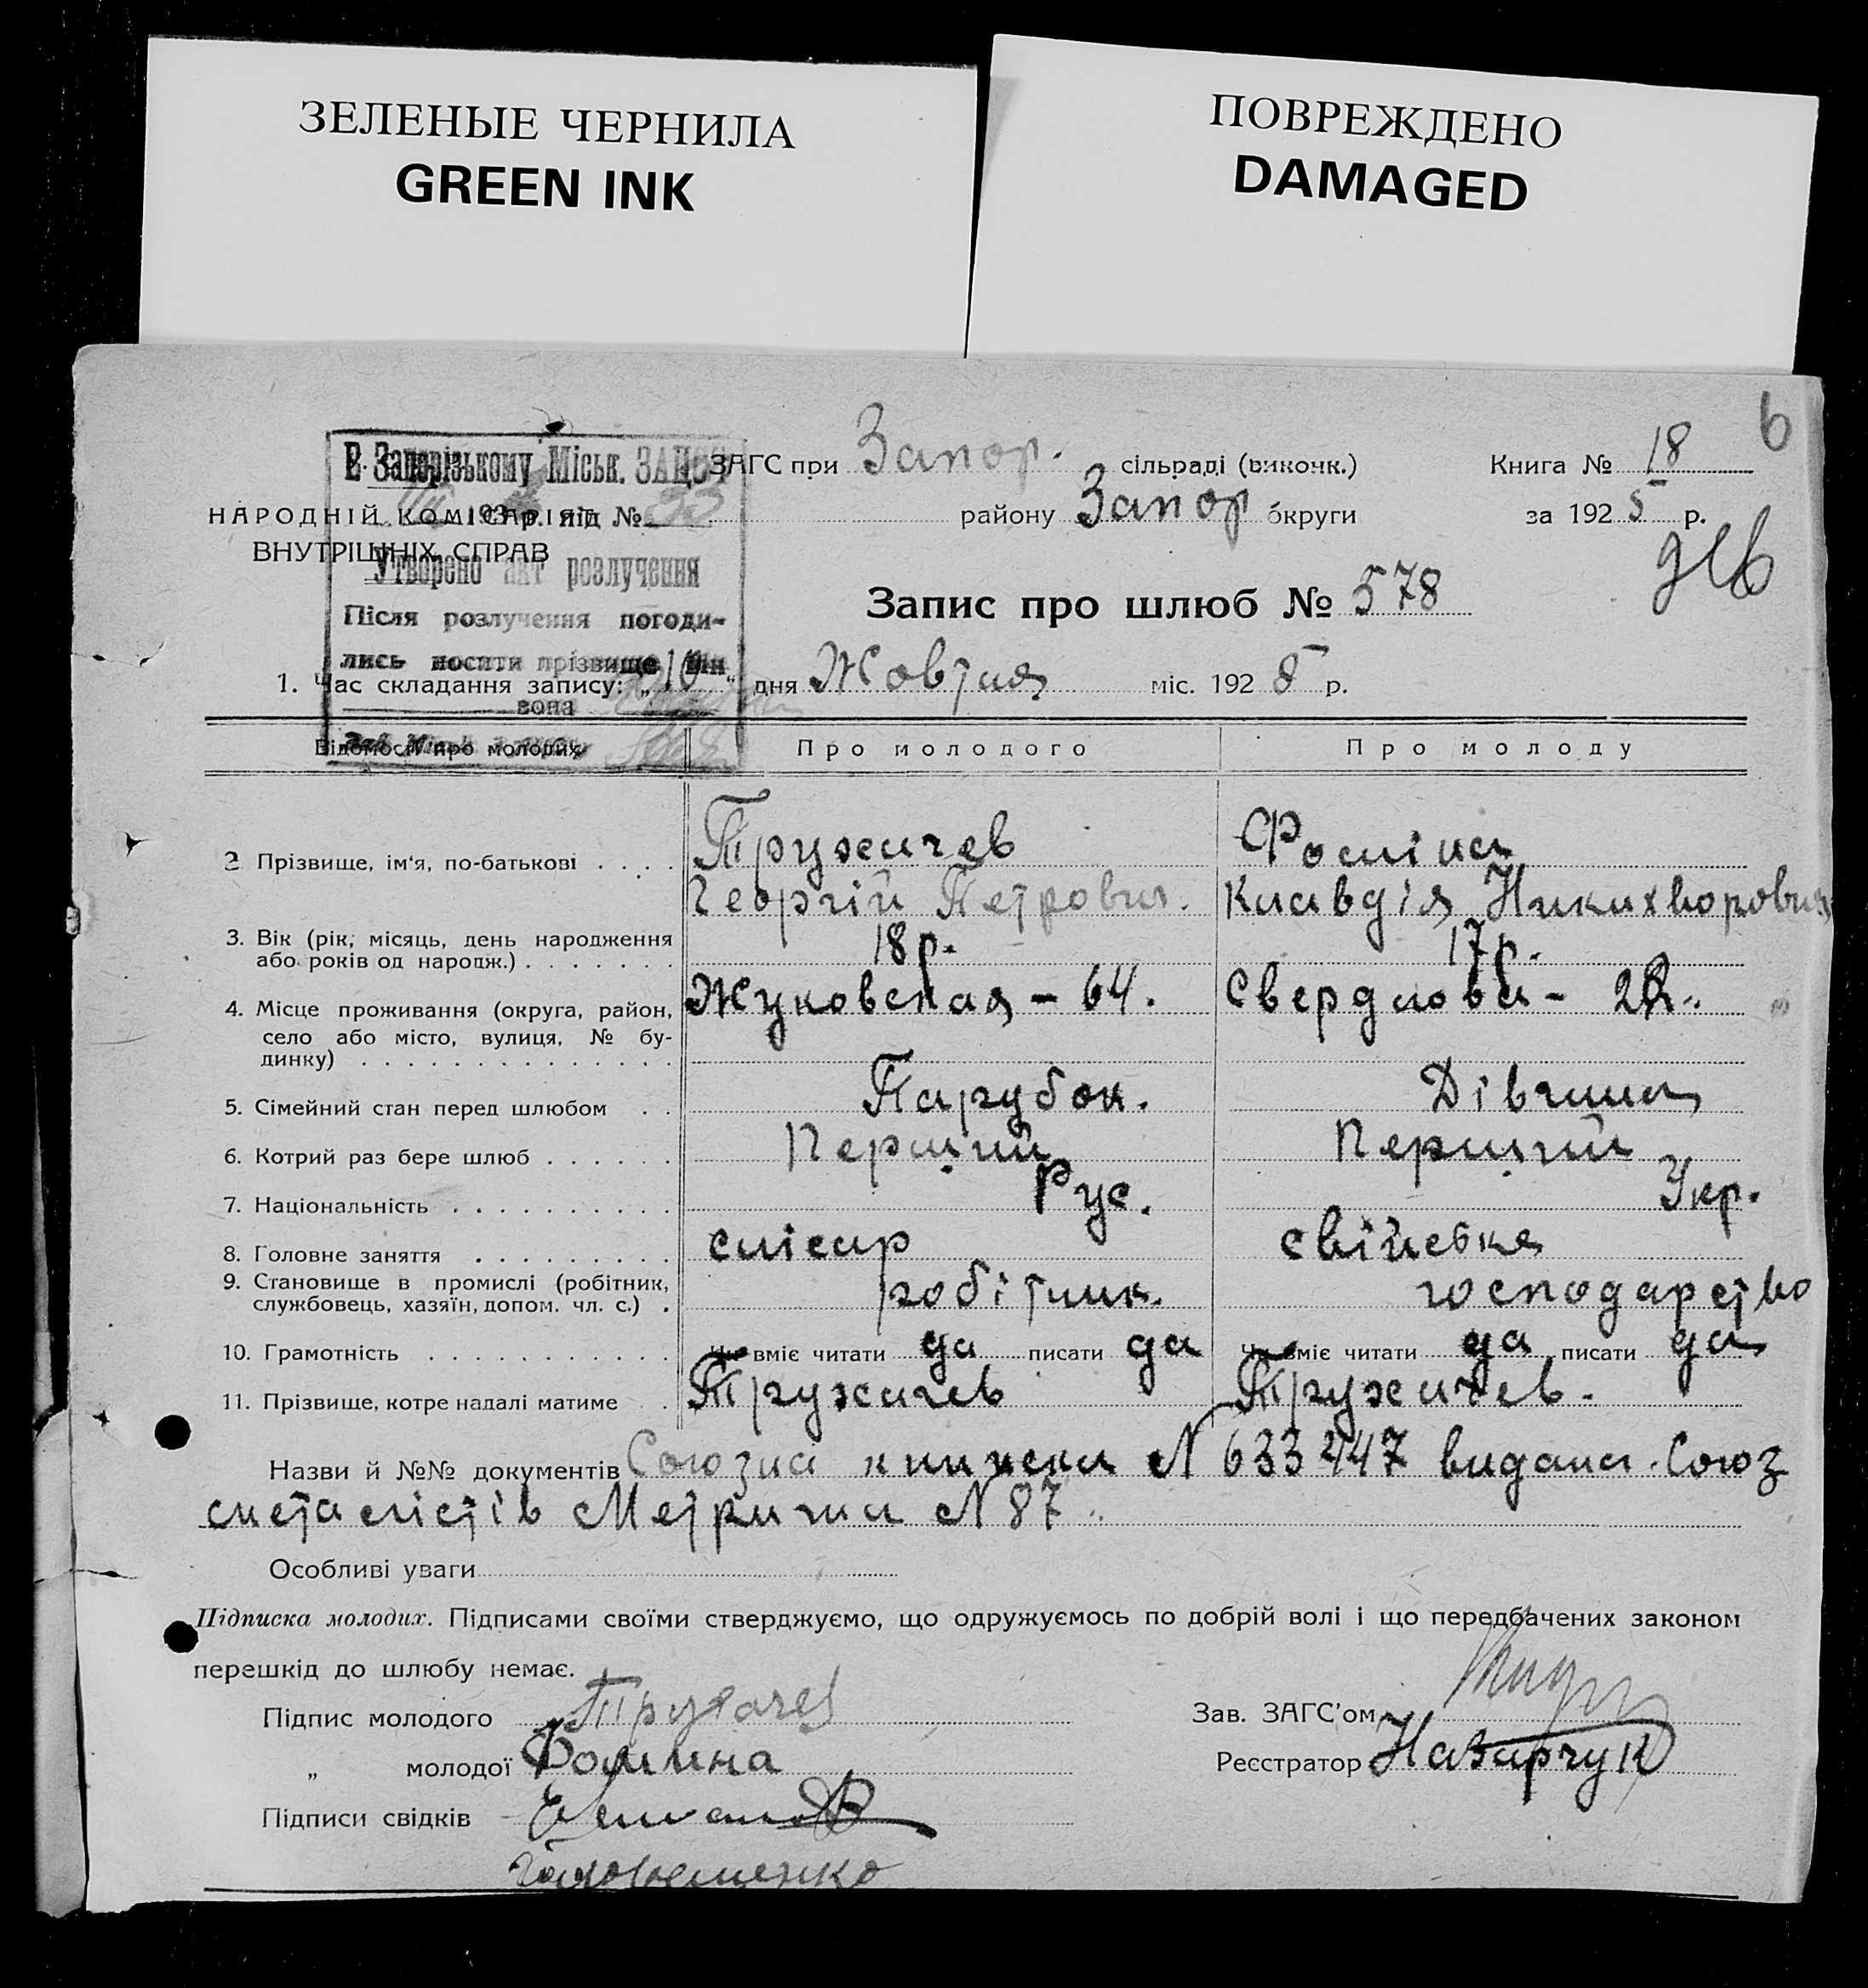 ЗЕЛЕНЫЕ ЧЕРНИЛА
GREEN INK
ПОВРЕЖДЕНО
DAMAGED
6
В Запорізькому Міськ. ЗАЦС'і
193 р. під № 33
Утворено акт розлучення
Після розлучення погоди-
лись носити прізвище він
вона
ЗАГС при Запор. сільраді (виконк.)
Книга № 18
НАРОДНІЙ КОМІСАРІЯТ
ВНУТРІШНІХ СПРАВ
району Запор округи
за 192 5 р.
Запис про шлюб № 578
1. Час складання запису: „10" дня Жовтня міс. 192 5 р.
Відомості про молодих
Про молодого
Про молоду
2 Прізвище, ім'я, по-батькові . . . .
Тружачев
Георгій Петрович.
Фоміна
Клавдія Никихворовна
3. Вік (рік, місяць, день народження
або років од народж.) . . . . . . .
18 р.
17 р.
4. Місце проживання (округа, район,
село або місто, вулиця, № бу-
динку) . . . . . . . . . . . . . .
Жуковская – 64.
Свердлова –
5. Сімейний стан перед шлюбом . .
Парубок.
Дівчина
6. Котрий раз бере шлюб . . . . . .
Перший
Перший
7. Національність . . . . . . . . . .
Рус.
Укр.
8. Головне заняття . . . . . . . . .
слісар
свійське
9. Становище в промислі (робітник,
службовець, хазяїн, допом. чл. с.) .
робітник.
господарство
10. Грамотність . . . . . . . . . . .
Чи вміє читати да писати да
Чи вміє читати да писати да
11. Прізвище, котре надалі матиме .
Тружачев
Тружачев.
Назви й №№ документів Союзна книжка № 633447 видана Союз
металістів Метрична № 87
Особливі уваги
Підписка молодих. Підписами своїми стверджуємо, що одружуємось по добрій волі і що передбачених законом
перешкід до шлюбу немає.
Підпис молодого Тружачев
„ молодої Фомина
Підписи свідків
Зав. ЗАГС'ом
Реєстратор Назарчук